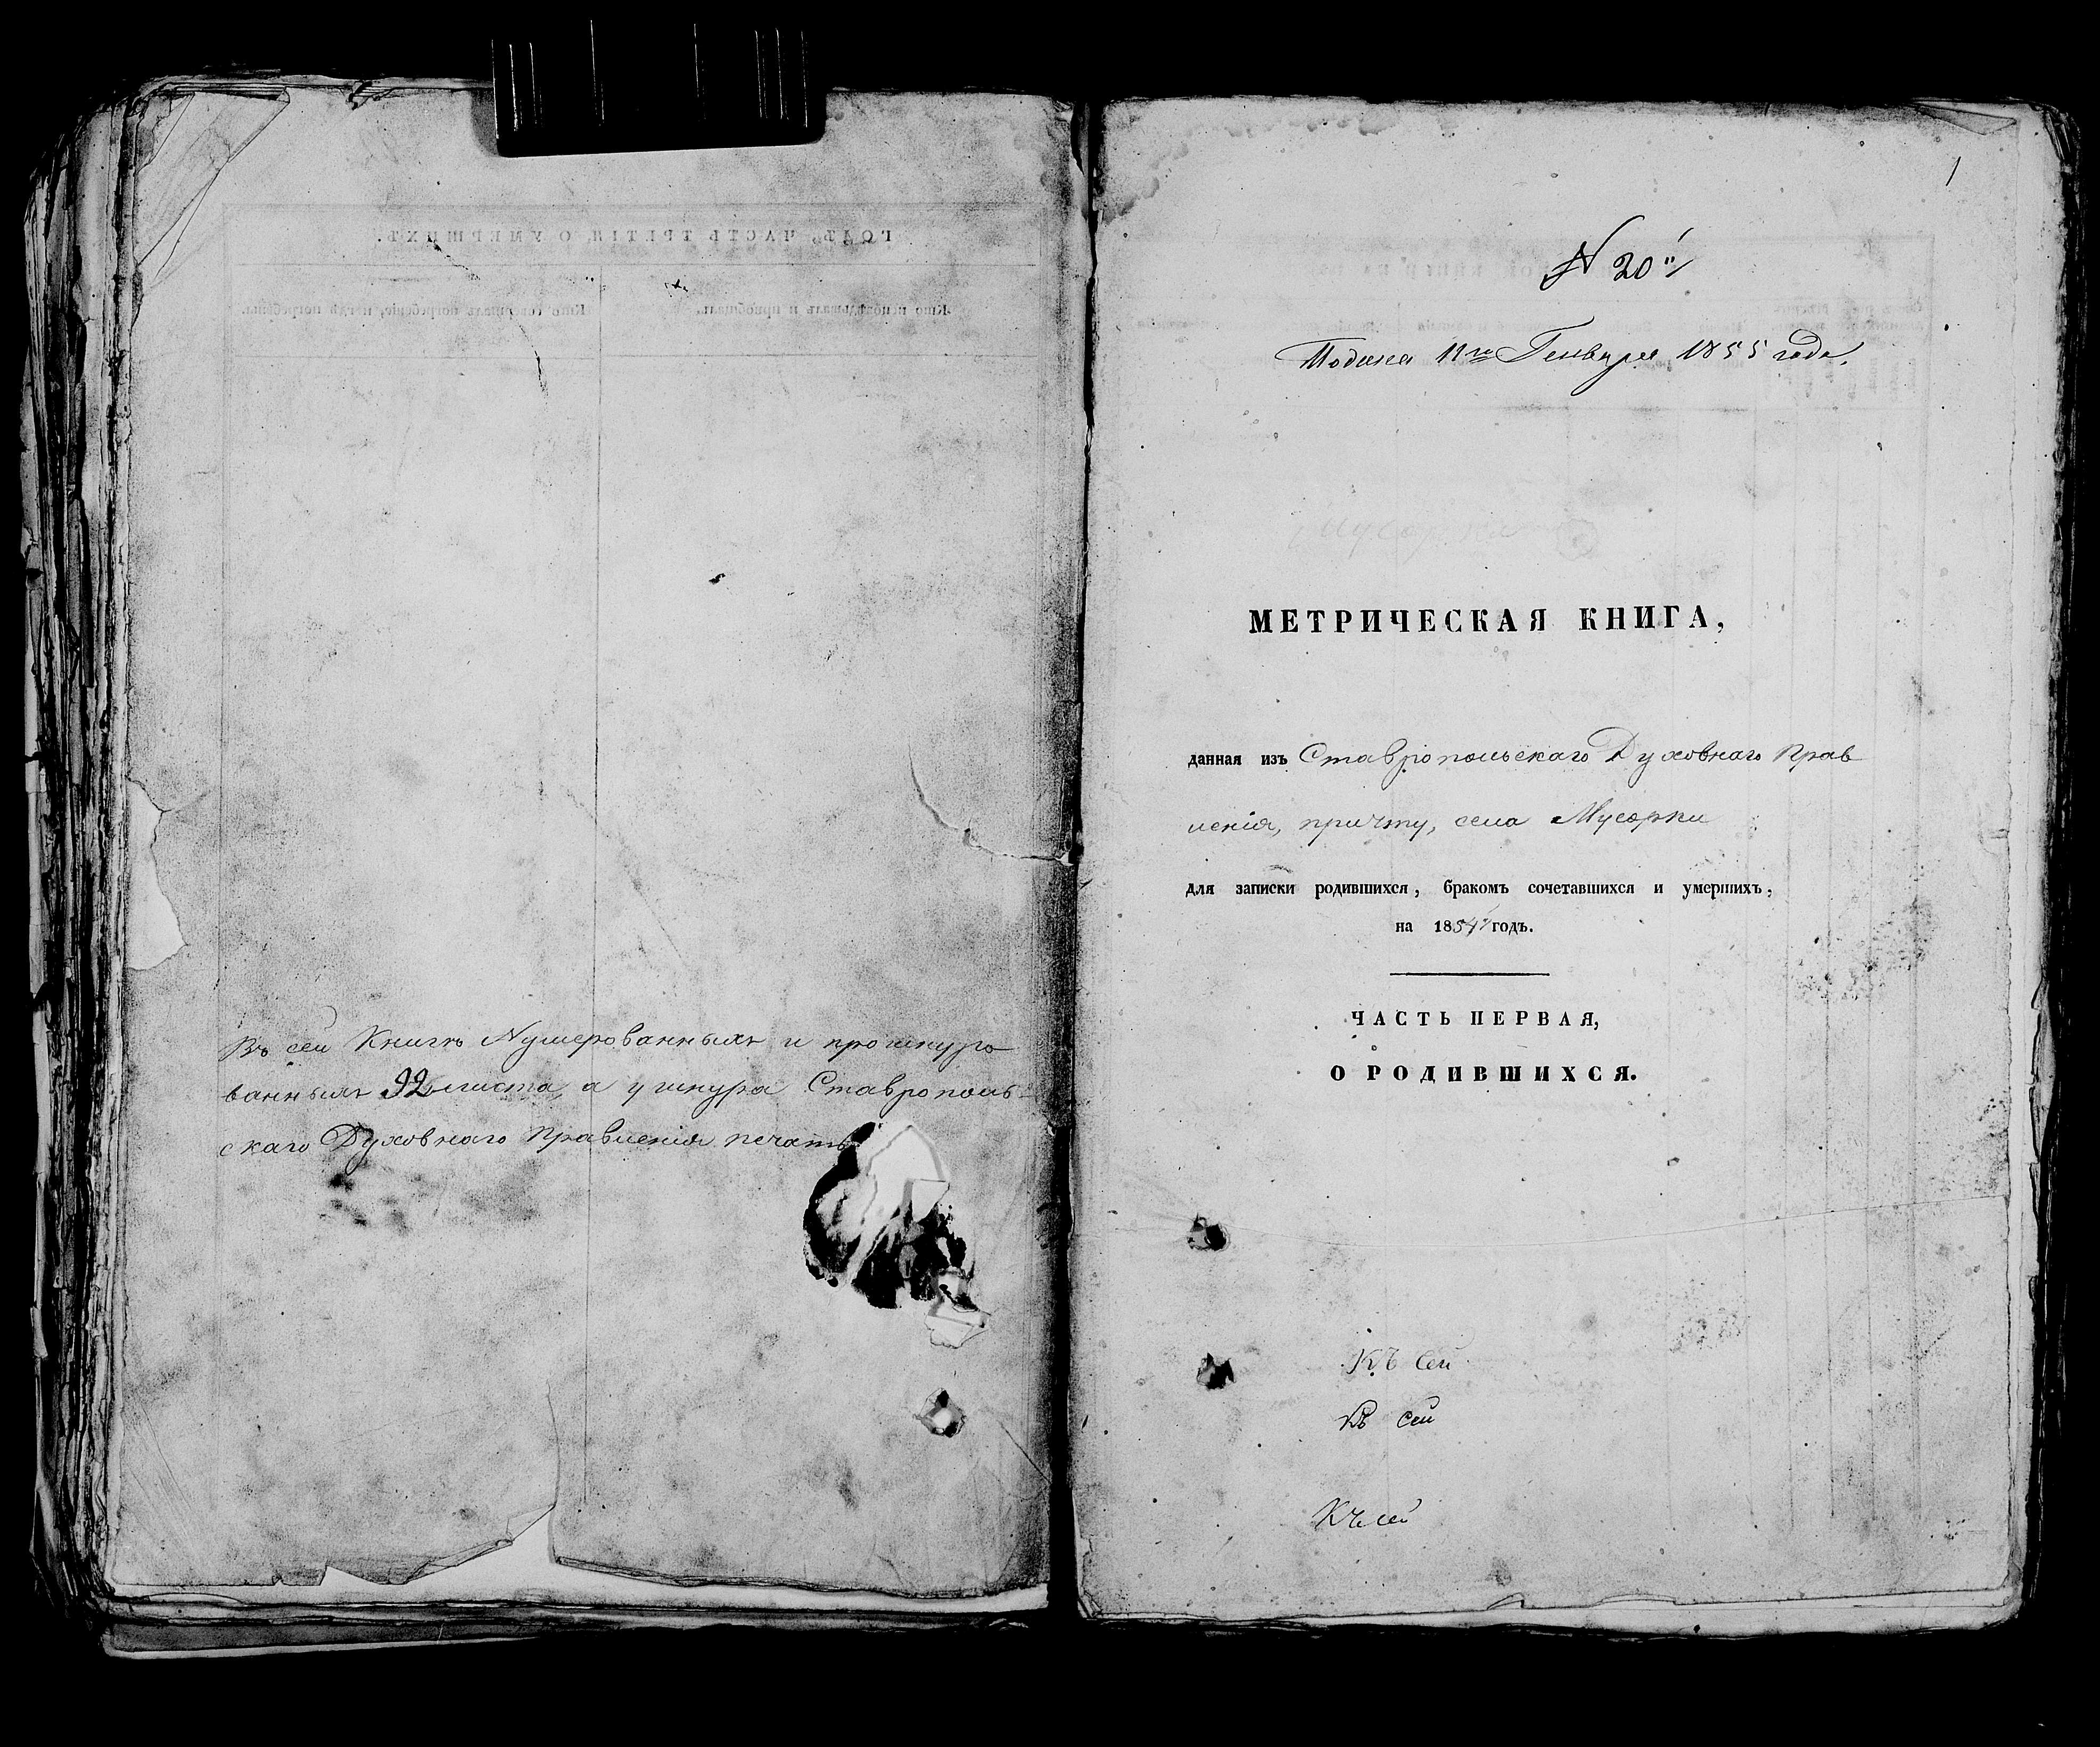 Въ сей Книге Нумерованныхъ и прошнуро
ванныхъ 92 листа, а у шнура Ставрополь-
скаго Духовнаго Правленія печать
1
N 20й
Подана 11го Генваря 1855 года.
Мусорка
МЕТРИЧЕСКАЯ КНИГА,
данная изъ Ставропольскаго Духовнаго Прав
ленія, причту, села Мусорки
для записки родившихся, бракомъ сочетавшихся и умершихъ,
на 1854й годъ.
ЧАСТЬ ПЕРВАЯ,
О РОДИВШИХСЯ.
Къ сей
Къ сей
Къ сей